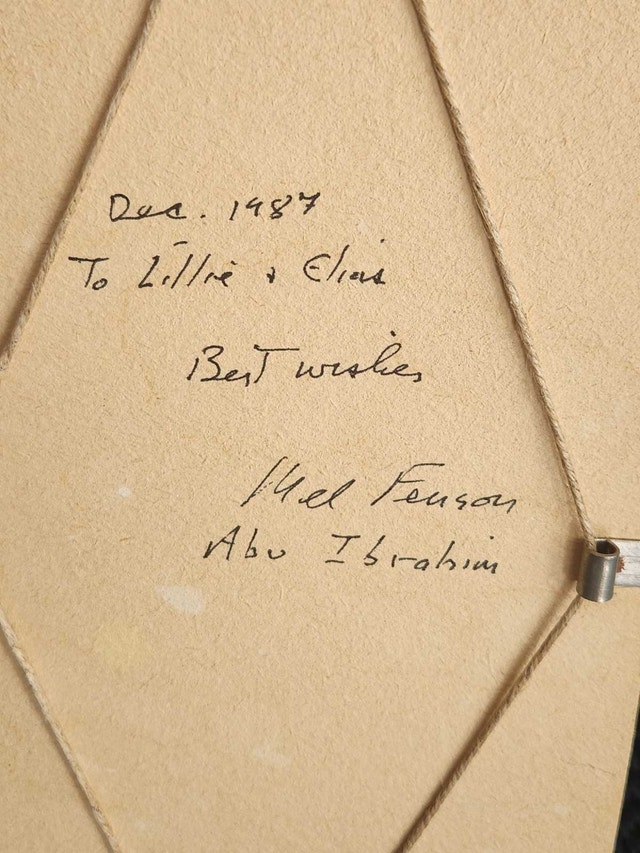 Dec. 1987
To Lillie + Elias
Best wishes
Mel Fenson
Abu Ibrahim